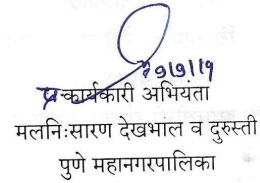 प्र कार्यकारी अभियंता
मलनिःसारण देखभाल व दुरुस्ती
पुणे महानगरपालिका